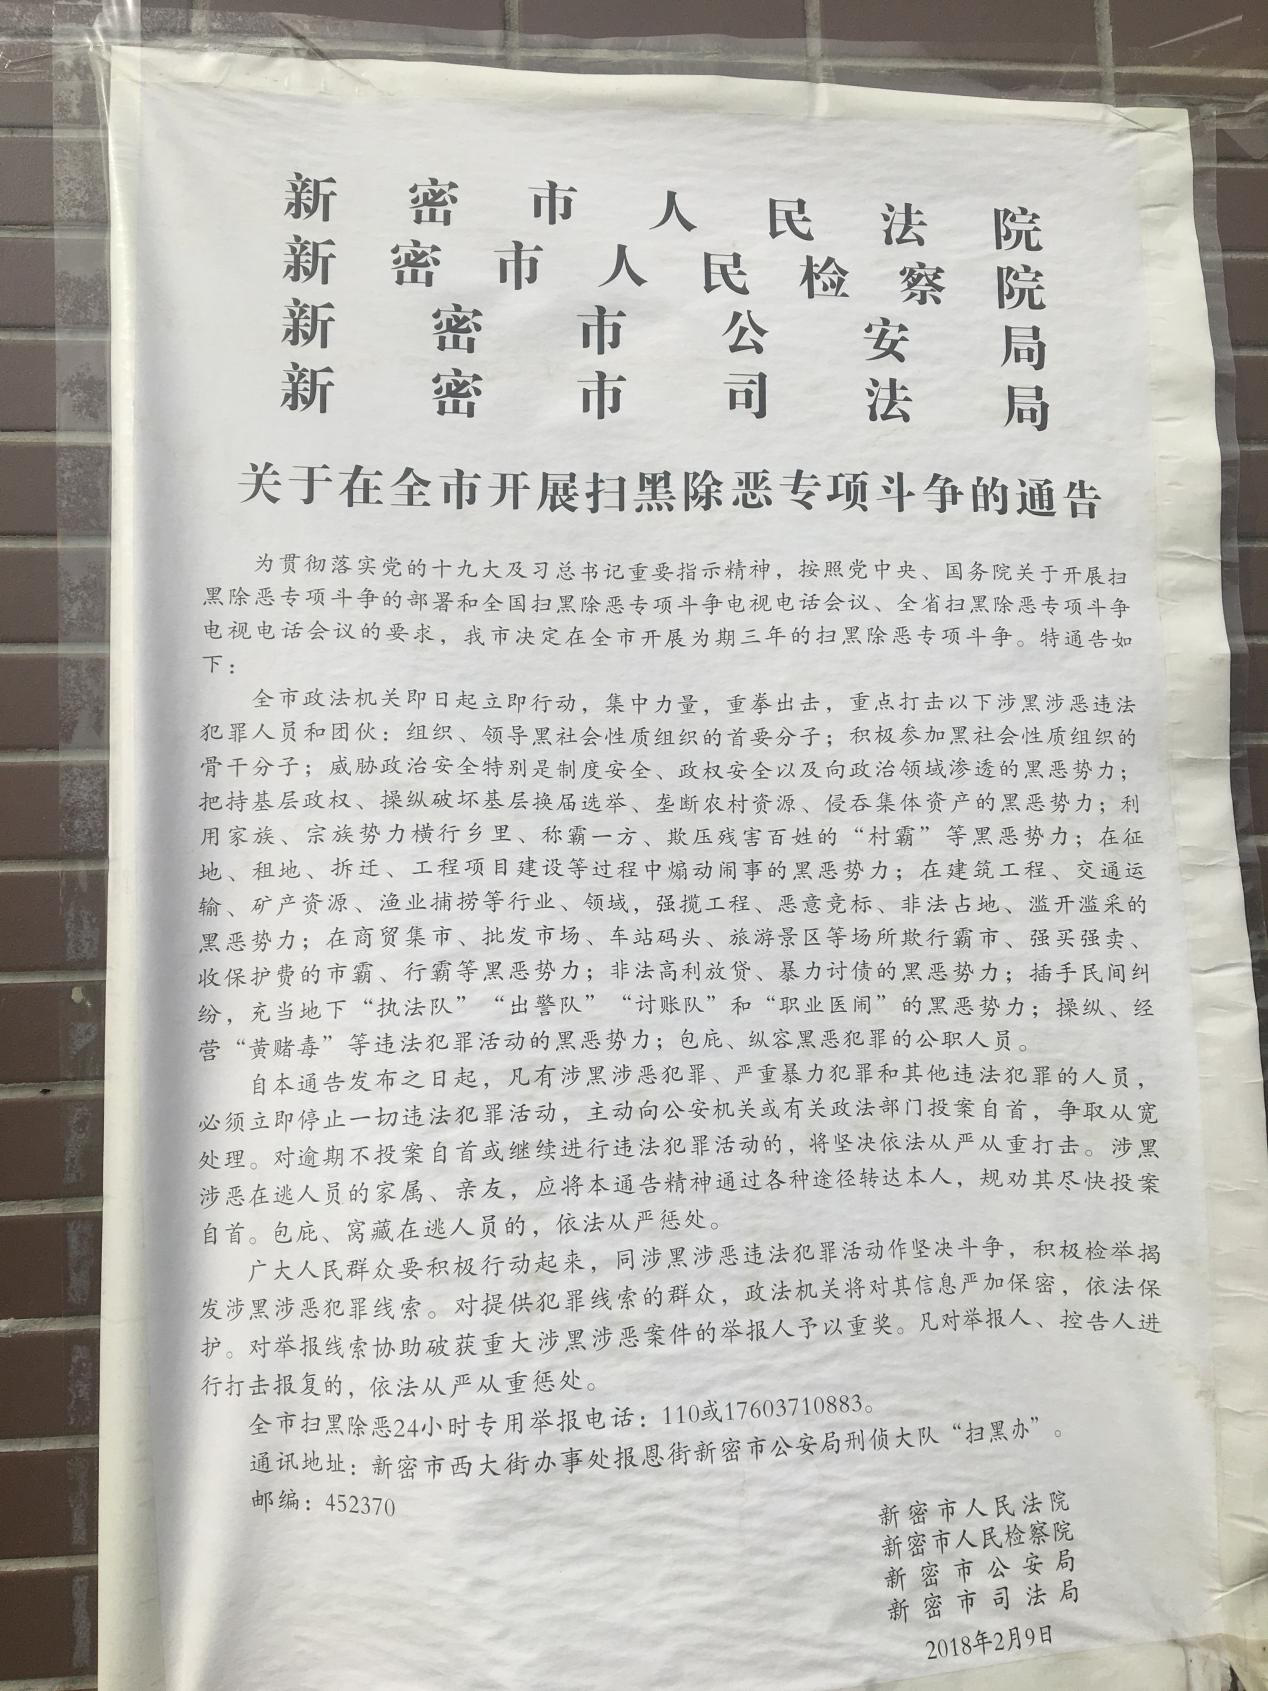 新密市人民法院
新密市人民检察院
新密市公安局
新密市司法局
关于在全市开展扫黑除恶专项斗争的通告
为贯彻落实党的十九大及习总书记重要指示精神，按照党中央、国务院关于开展扫
黑除恶专项斗争的部署和全国扫黑除恶专项斗争电视电话会议、全省扫黑除恶专项斗争
电视电话会议的要求，我市决定在全市开展为期三年的扫黑除恶专项斗争。特通告如
下：
全市政法机关即日起立即行动，集中力量，重拳出击，重点打击以下涉黑涉恶违法
犯罪人员和团伙：组织、领导黑社会性质组织的首要分子；积极参加黑社会性质组织的
骨干分子；威胁政治安全特别是制度安全、政权安全以及向政治领域渗透的黑恶势力；
把持基层政权、操纵破坏基层换届选举、垄断农村资源、侵吞集体资产的黑恶势力；利
用家族、宗族势力横行乡里、称霸一方、欺压残害百姓的“村霸”等黑恶势力；在征
地、租地、拆迁、工程项目建设等过程中煽动闹事的黑恶势力；在建筑工程、交通运
输、矿产资源、渔业捕捞等行业、领域，强揽工程、恶意竞标、非法占地、滥开滥采的
黑恶势力；在商贸集市、批发市场、车站码头、旅游景区等场所欺行霸市、强买强卖、
收保护费的市霸、行霸等黑恶势力；非法高利放贷、暴力讨债的黑恶势力；插手民间纠
纷，充当地下“执法队”“出警队”“讨账队”和“职业医闹”的黑恶势力；操纵、经
营“黄赌毒”等违法犯罪活动的黑恶势力；包庇、纵容黑恶犯罪的公职人员。
自本通告发布之日起，凡有涉黑涉恶犯罪、严重暴力犯罪和其他违法犯罪的人员，
必须立即停止一切违法犯罪活动，主动向公安机关或有关政法部门投案自首，争取从宽
处理。对逾期不投案自首或继续进行违法犯罪活动的，将坚决依法从严从重打击。涉黑
涉恶在逃人员的家属、亲友，应将本通告精神通过各种途径转达本人，规劝其尽快投案
自首。包庇、窝藏在逃人员的，依法从严惩处。
广大人民群众要积极行动起来，同涉黑涉恶违法犯罪活动作坚决斗争，积极检举揭
发涉黑涉恶犯罪线索。对提供犯罪线索的群众，政法机关将对其信息严加保密，依法保
护。对举报线索协助破获重大涉黑涉恶案件的举报人予以重奖。凡对举报人、控告人进
行打击报复的，依法从严从重惩处。
全市扫黑除恶24小时专用举报电话：110或17603710883。
通讯地址：新密市西大街办事处报恩街新密市公安局刑侦大队“扫黑办”。
邮编：452370
新密市人民法院
新密市人民检察院
新密市公安局
新密市司法局
2018年2月9日